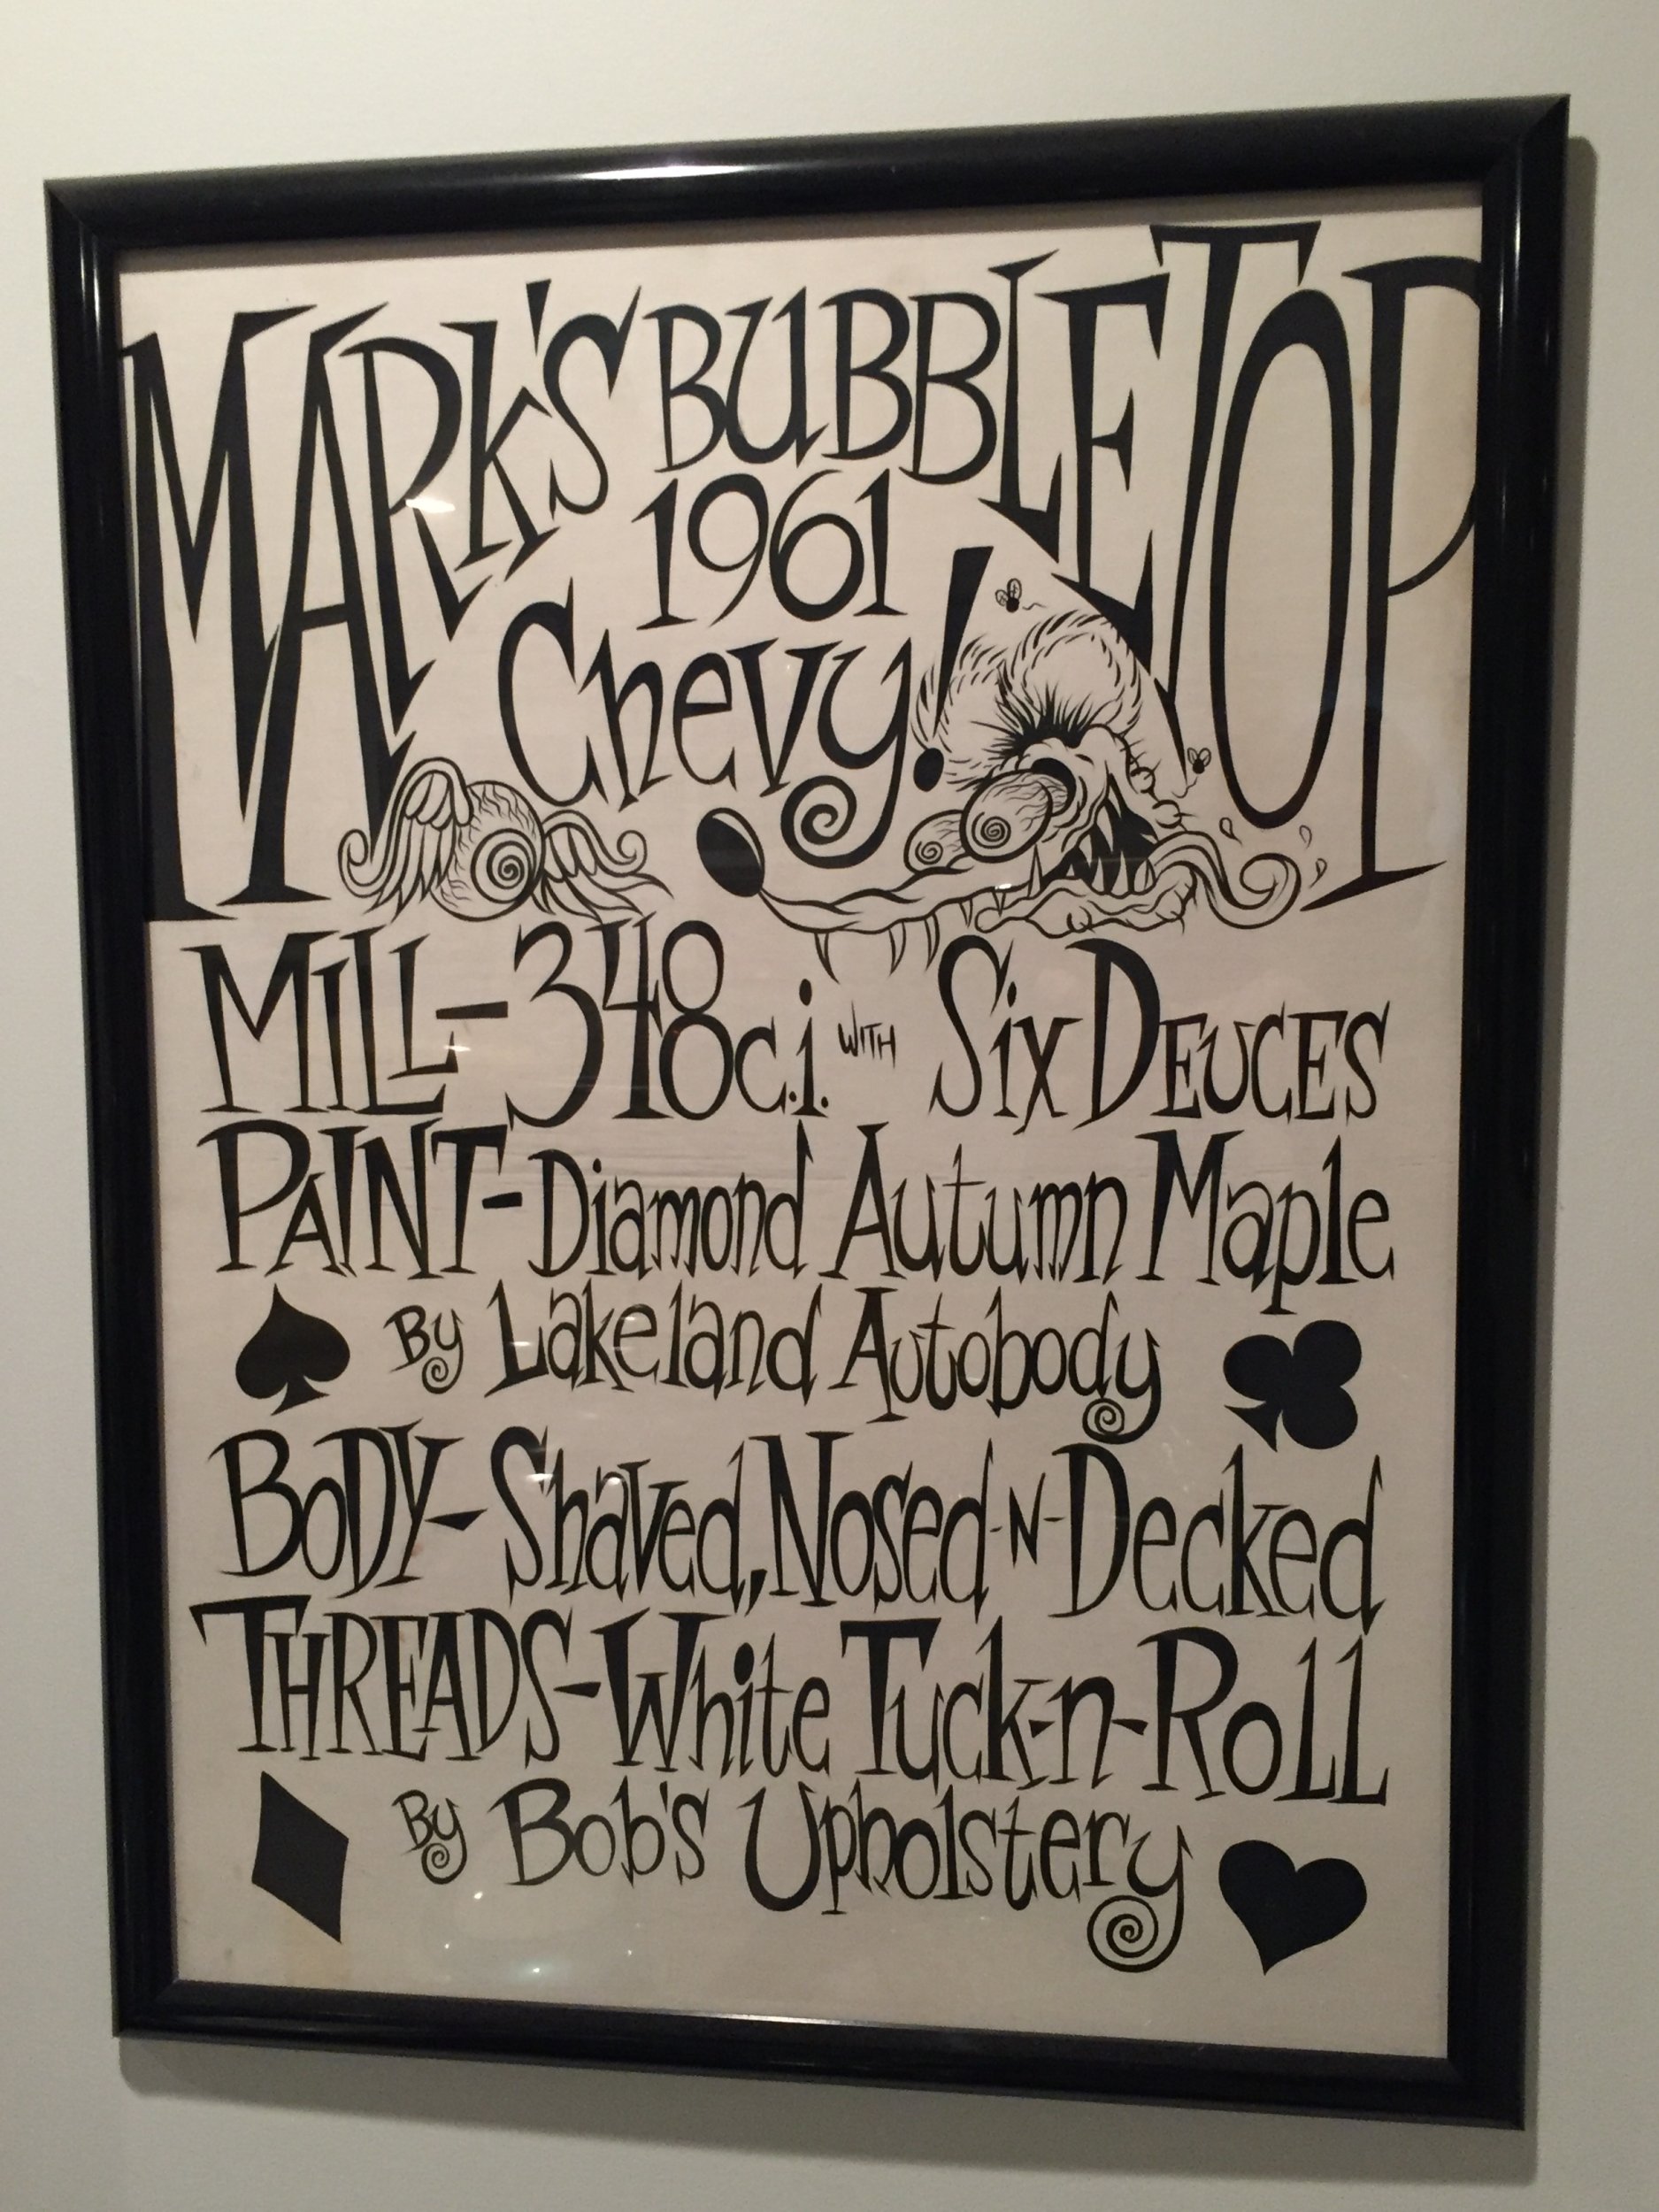 MARK'S BUBBLETOP
1961
Chevy!
MILL-348 c.i. WITH Six DEUCES
PAINT-Diamond Autumn Maple
By Lakeland Autobody
BODY-Shaved, Nosed-N-Decked
THREADS-White Tuck-n-Roll
By Bob's Upholstery